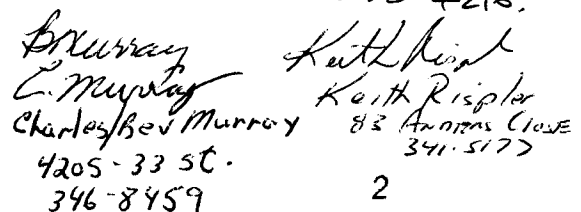 B Murray
C. Murray
Charles/Bev Murray
4205 - 33 St.
346-8459
Keith Rispler
Keith Rispler
83 Anders Close
341-5177
2